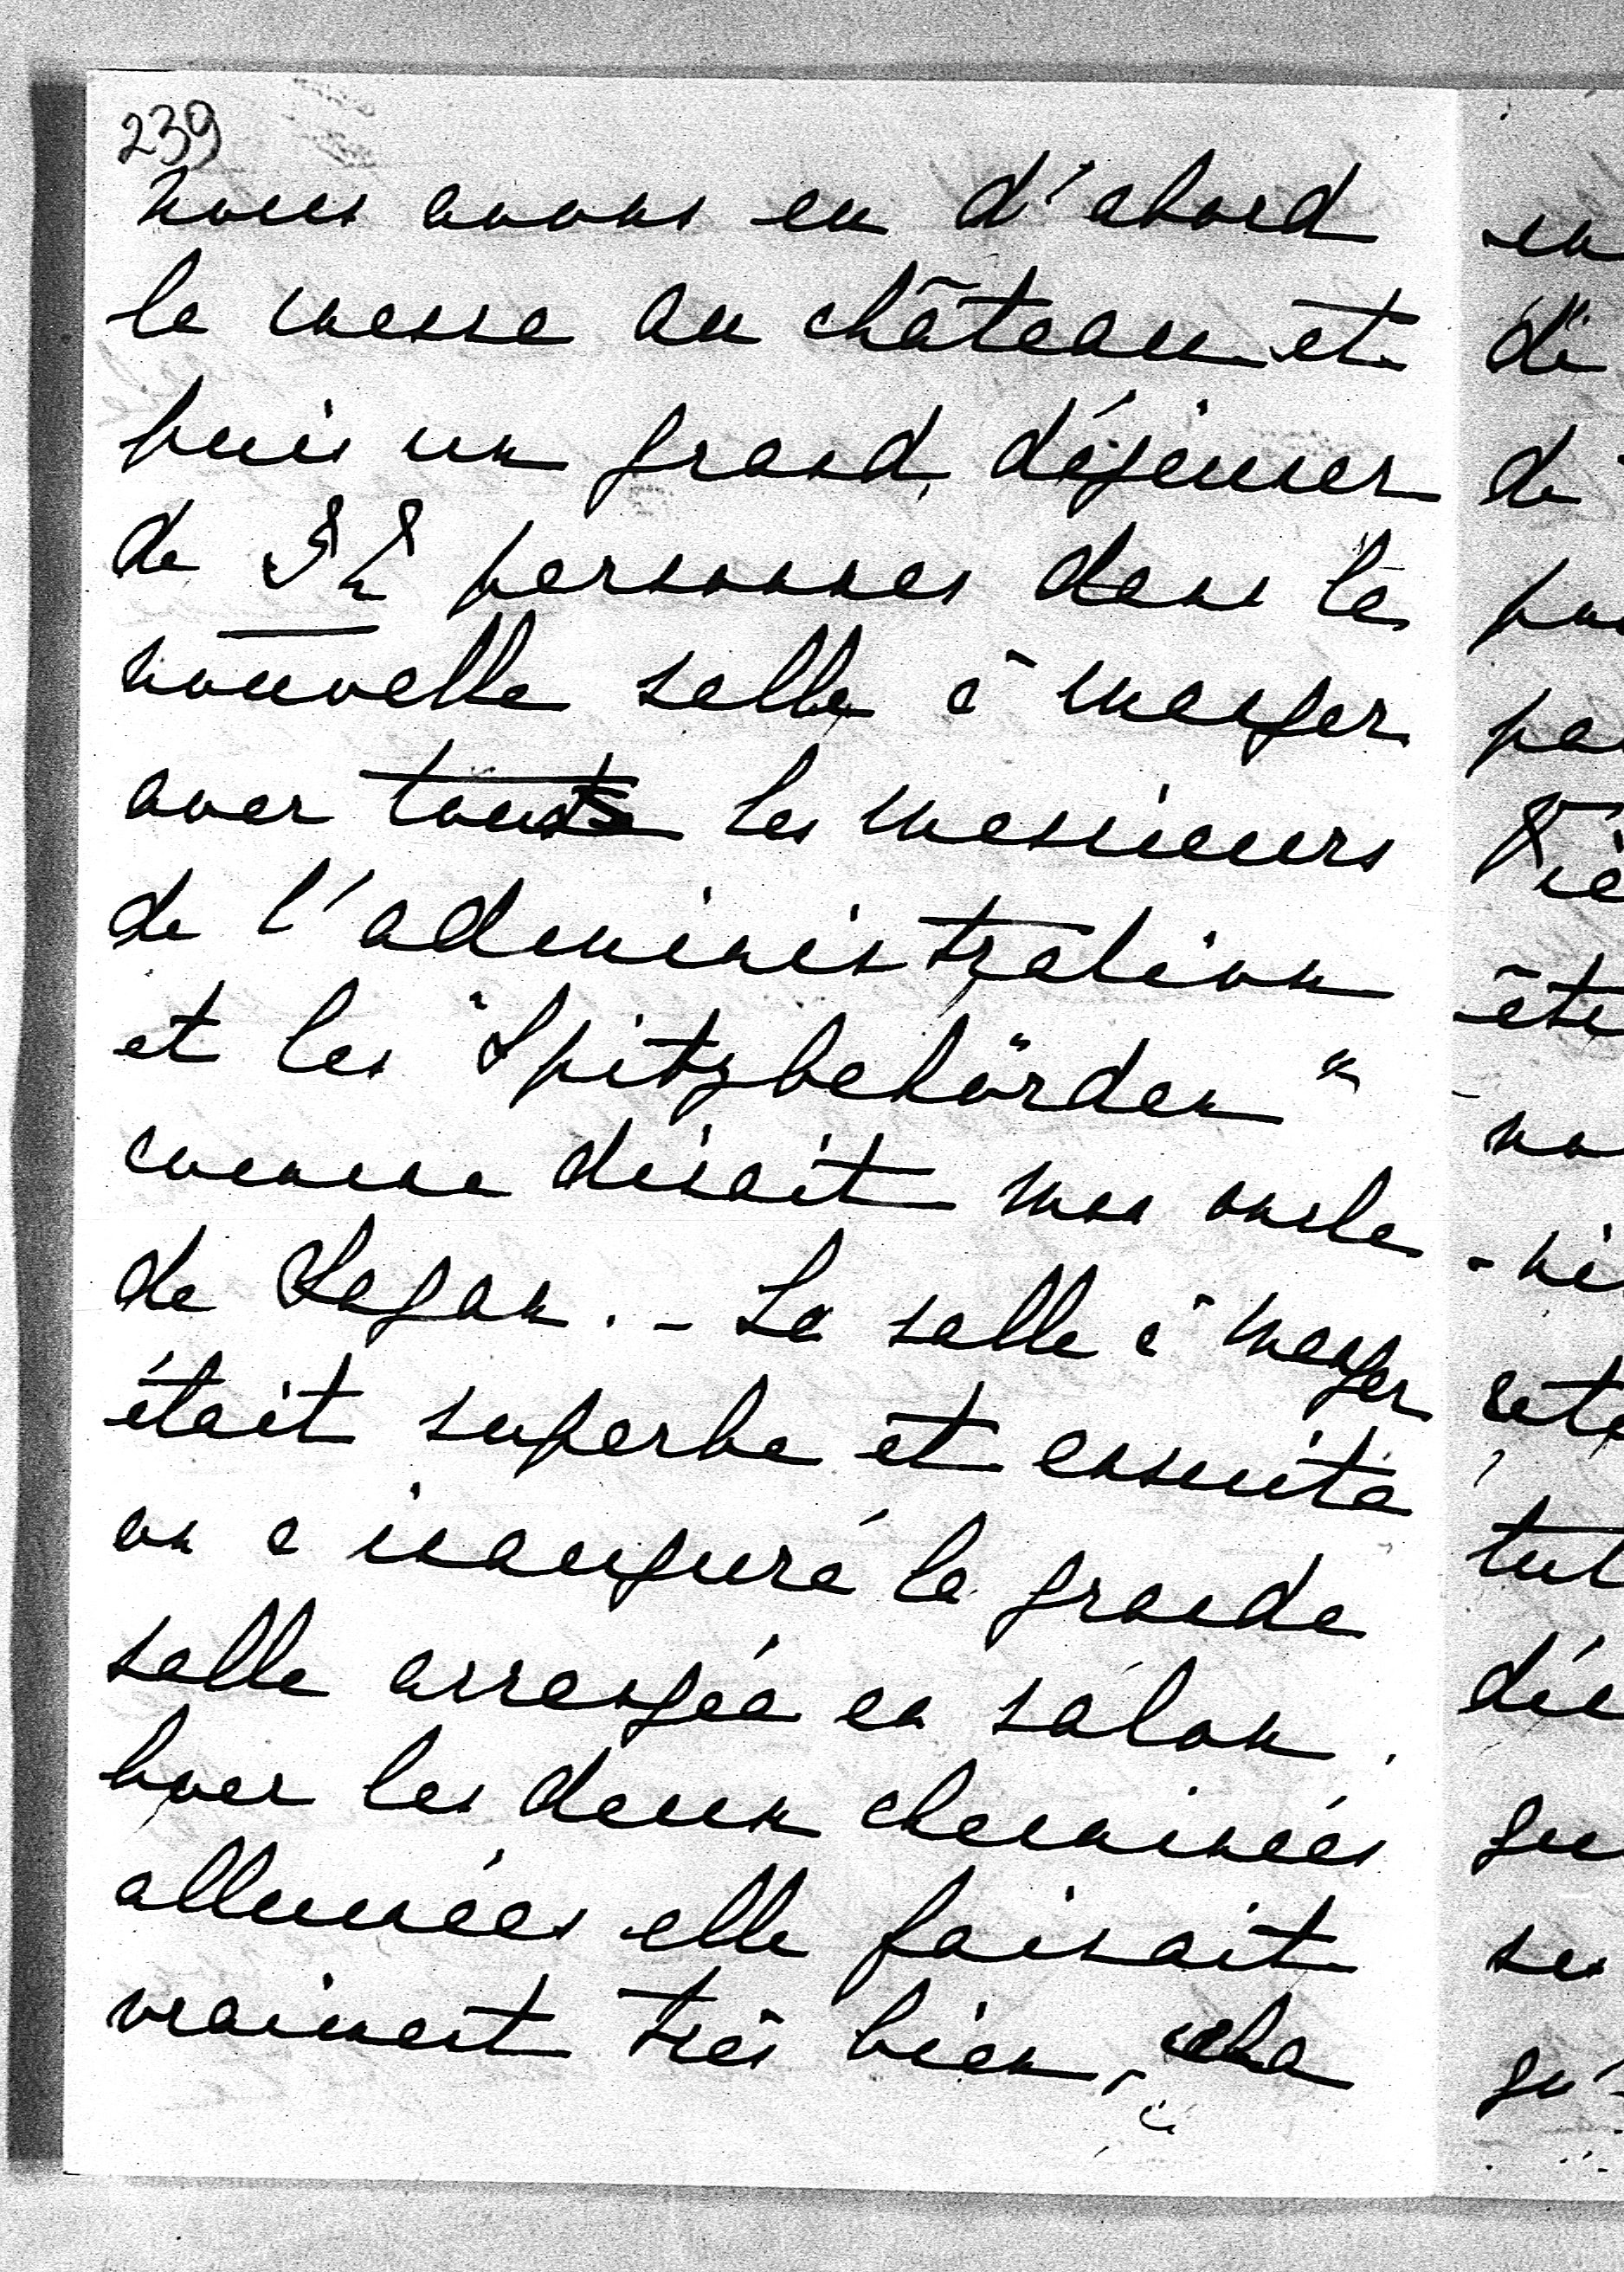 239
nous avons eu d'abord
la messe au château et
puis un grand déjeuner
de personnes dans la
nouvelle salle à manger
avec tous les messieurs
de l'administration
et les "Spitzbehörden"
comme disait mon oncle
de Sagan. - La salle à manger
était superbe et ensuite
on a inauguré la grande
salle arrangée en salon.
Avec les deux cheminées
allumées elle faisait
vraiment très bien,